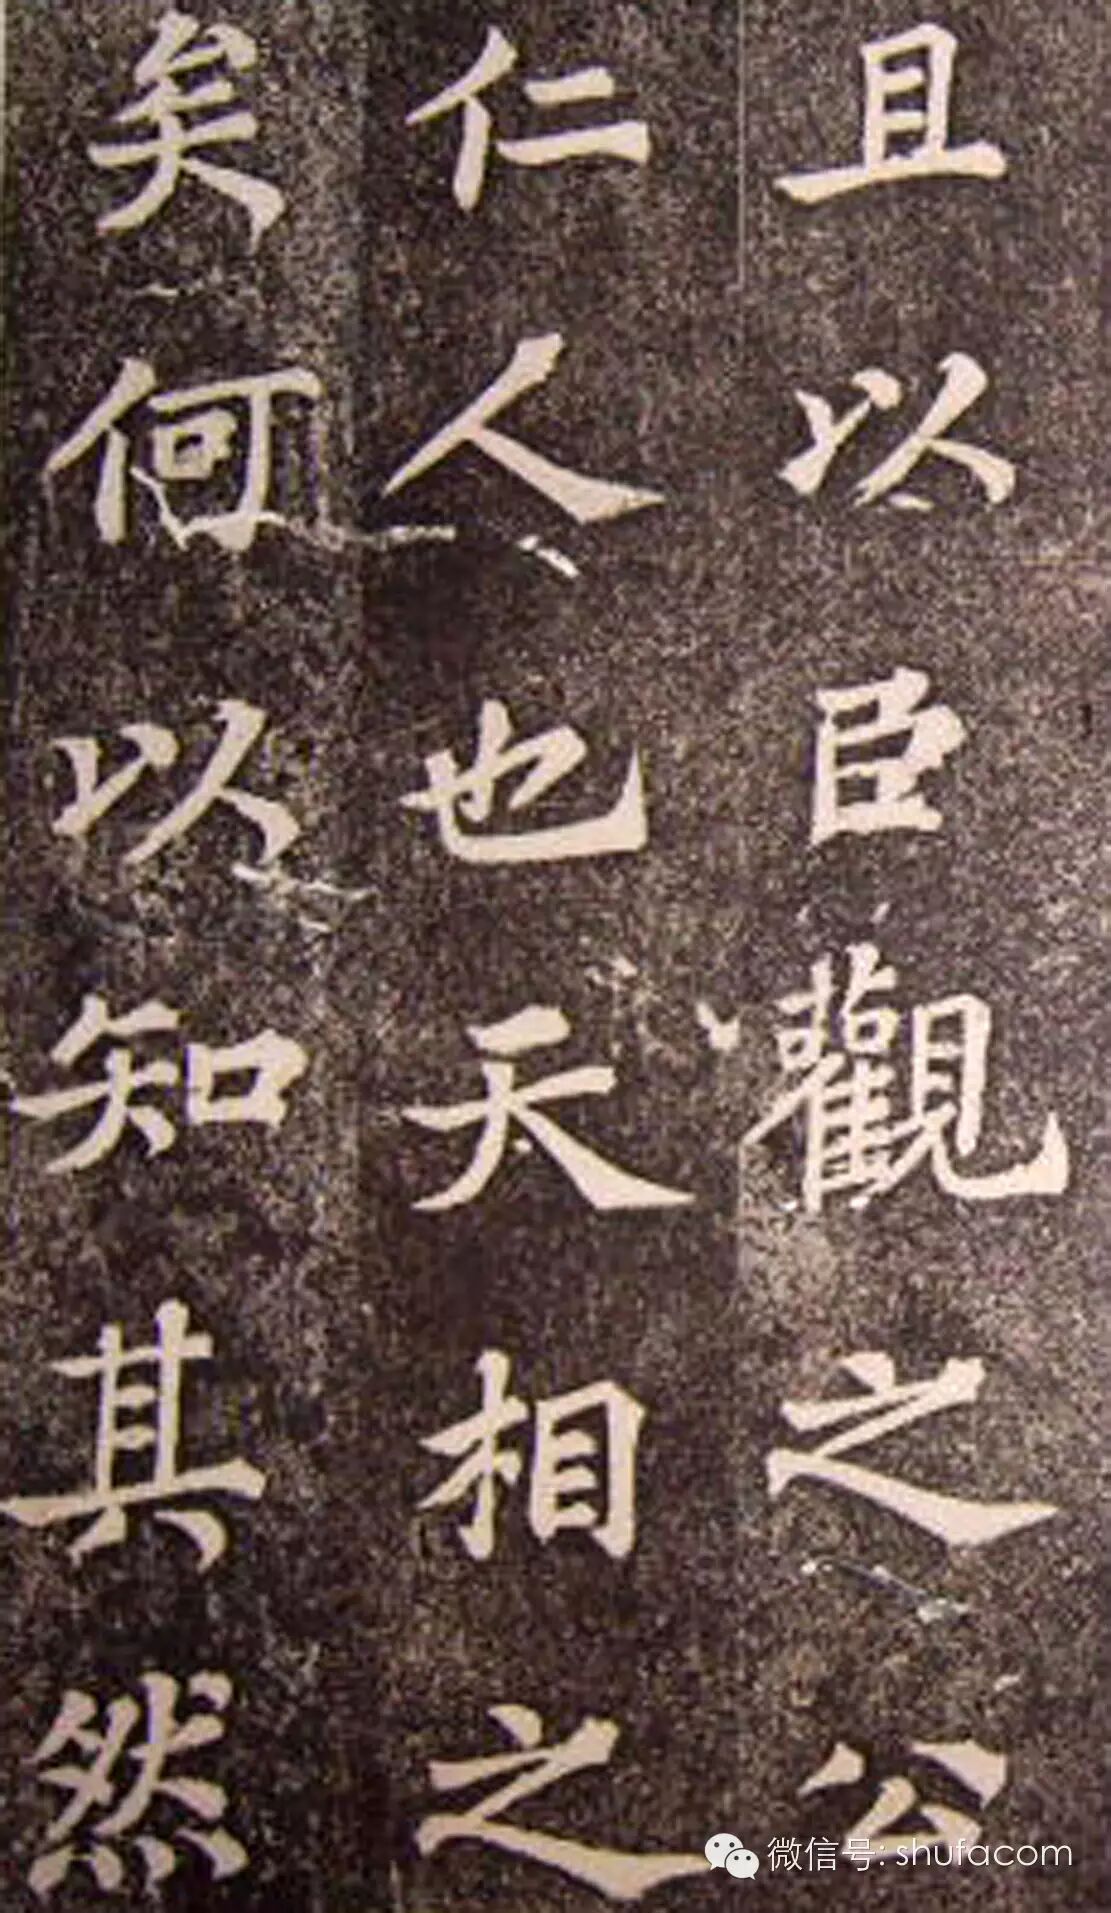 且以臣觀之公
仁人也天相之
矣何以知其然
微信号: shufacom